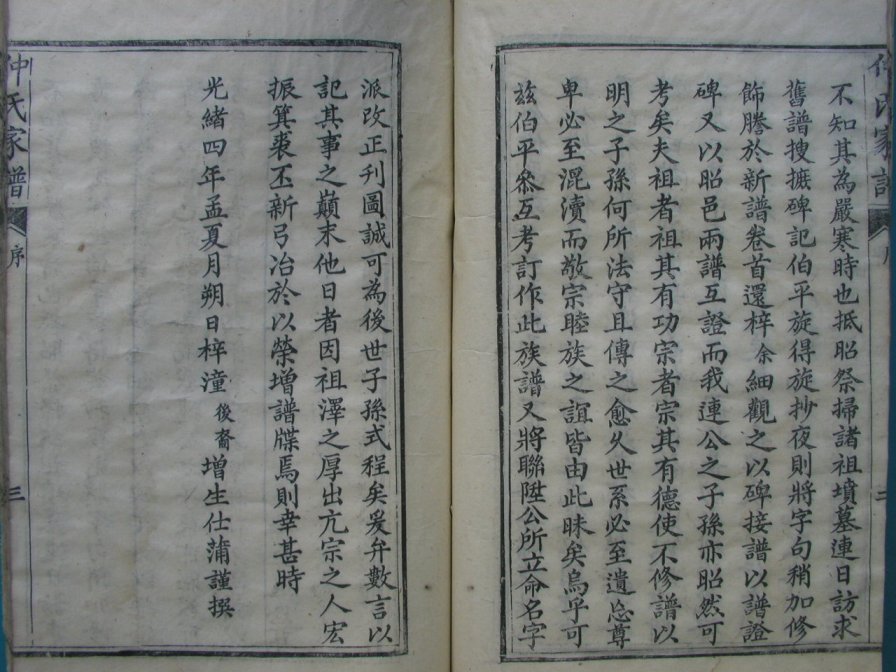 不知其為嚴寒時也抵昭祭掃諸祖墳墓連日訪求
舊譜搜摭碑記伯平旋得旋抄夜則將字句稍加修
飾謄於新譜卷首還梓余細觀之以碑接譜以譜證
碑又以昭邑兩譜互證而我連公之子孫亦昭然可
考矣夫祖者祖其有功宗者宗其有德使不修譜以
明之子孫何所法守且傳之愈久世系必至遺忘尊
卑必至混瀆而敬宗睦族之誼皆由此昧矣烏乎可
茲伯平叅互考訂作此族譜又將聯陞公所立命名字
派改正刊圖誠可為後世子孫式程矣爰弁數言以
記其事之巔末他日者因祖澤之厚出亢宗之人宏
振箕裘丕新弓冶於以榮增譜牒焉則幸甚時
光緒四年孟夏月朔日梓潼後裔增生仕蒲謹撰
仲氏家譜
序
三